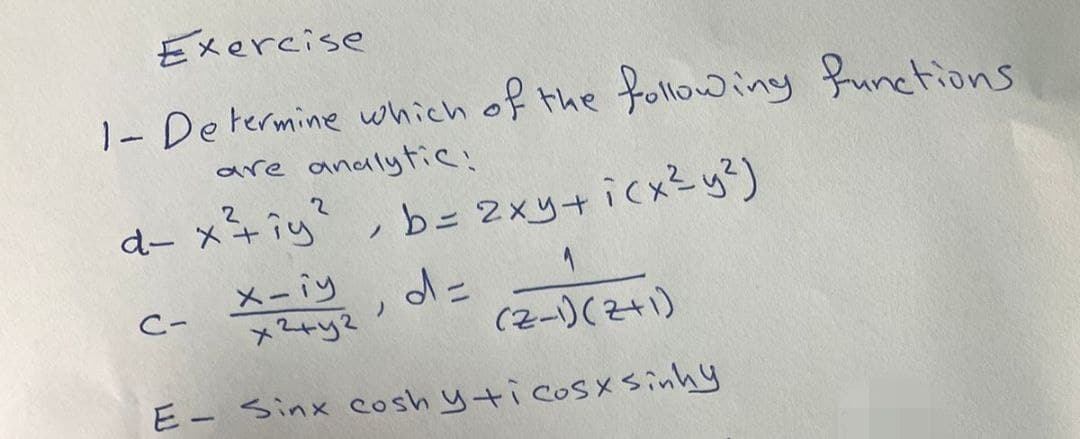 Exercise
1- Determine which of the following functions
are analytic:
d- x²+iy² , b= 2xy+i(x²-y²)
c- x-iy / x²+y² , d= 1 / (z-1)(z+1)
E- Sinx coshy+i cosx sinhy